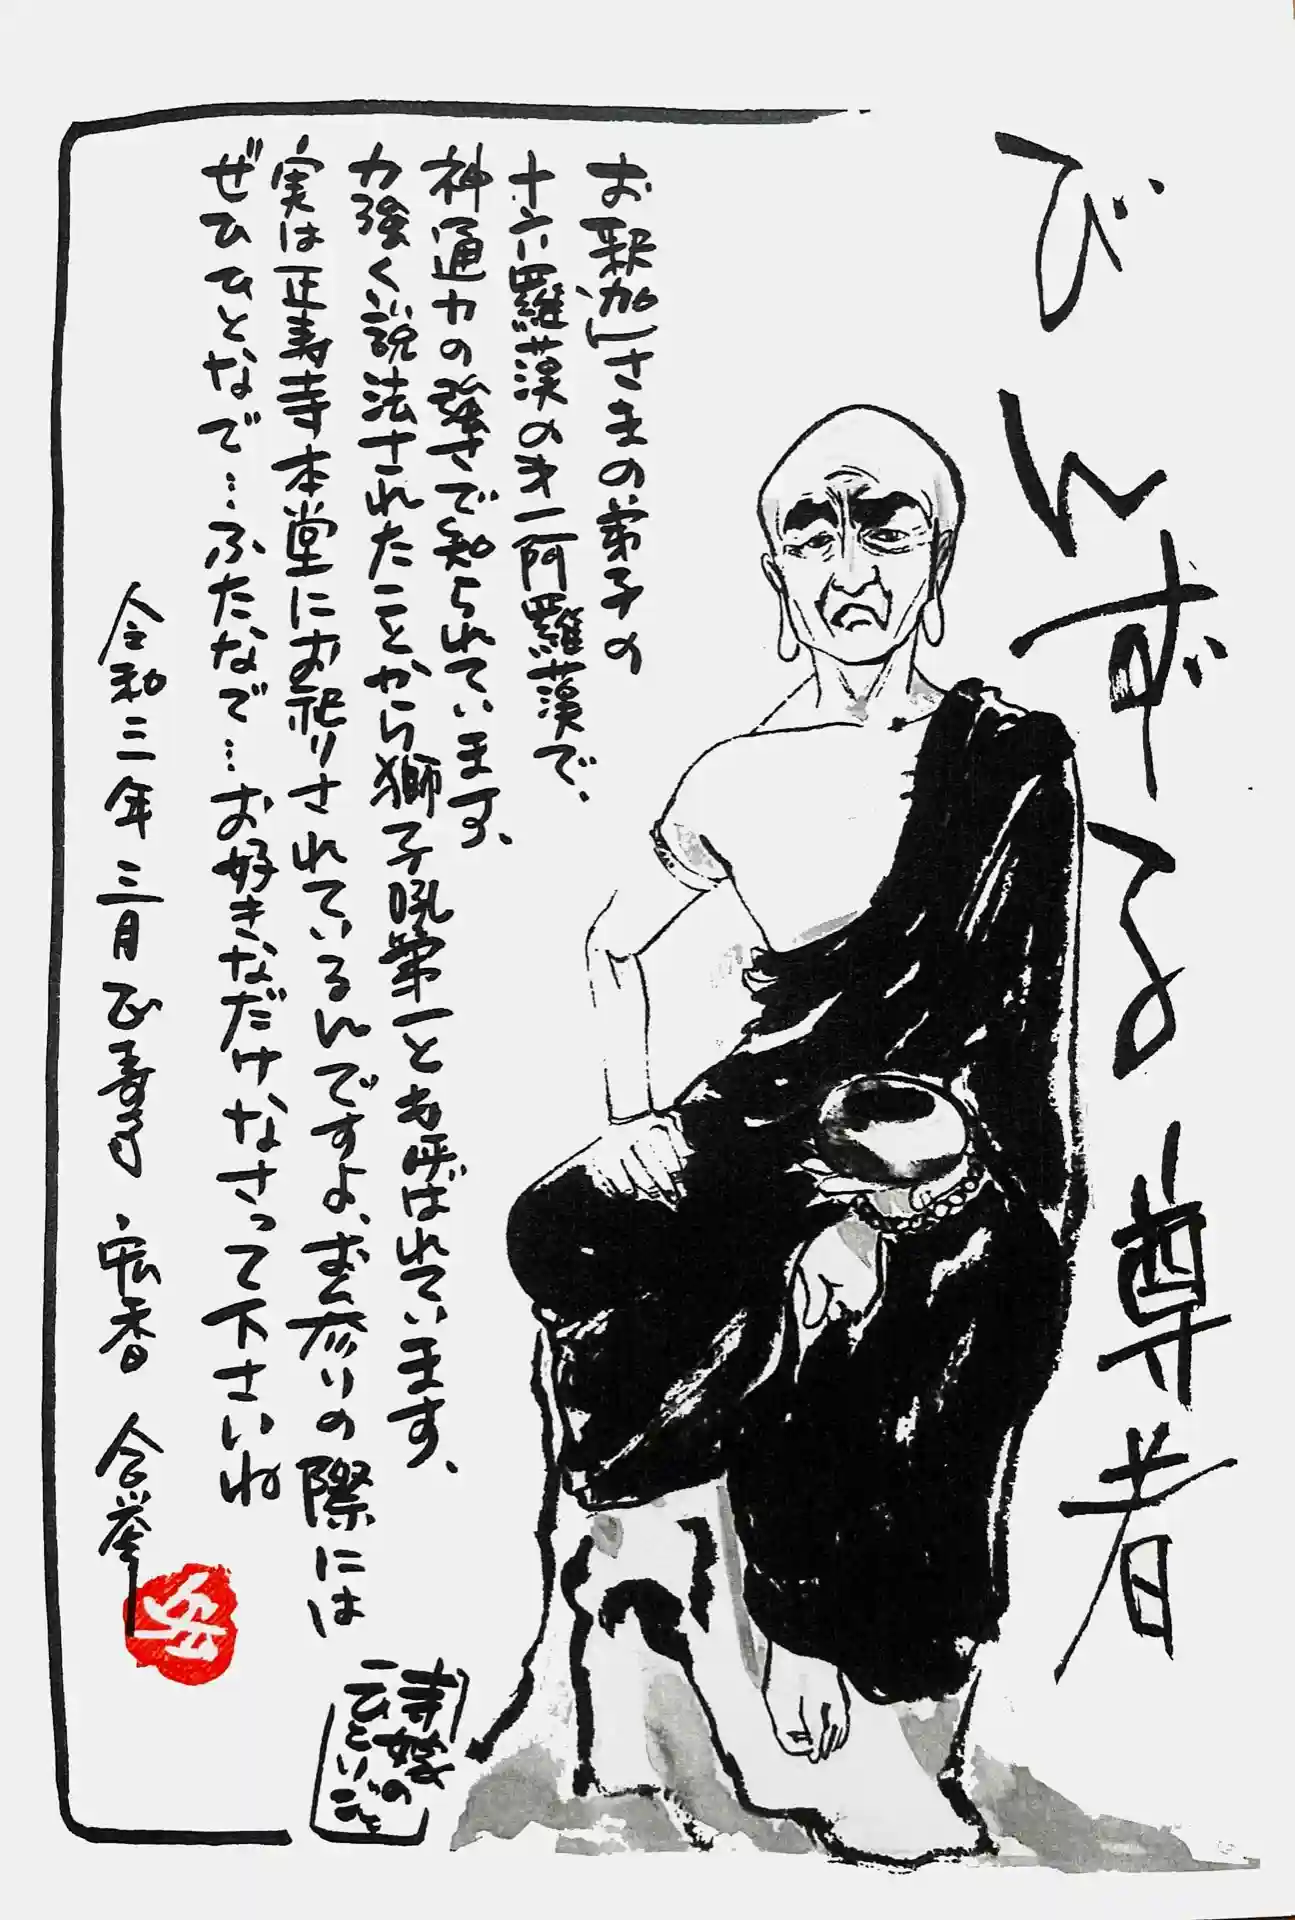 びんずる尊者
お釈迦さまの弟子の
十六羅漢の才一阿羅漢で、
神通力の強さで知られています。
力強く説法されたことから獅子吼第一とも呼ばれています。
実は正寿寺本堂にお祀りされているんですよ、お参りの際には
ぜひひとなで…ふたなで…お好きなだけなさって下さいね
令和三年三月正寿寺 宏香 合掌
寺嫁の
ひとりごと